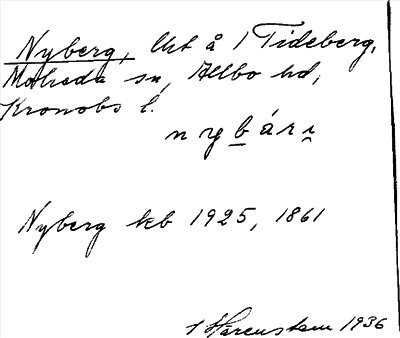 Nyberg, lht å 1 Tideberg,
Moheda sn, Allbo hd,
Kronobs l.
n y b á r i
Nyberg kb 1925, 1861
Härenstam 1936